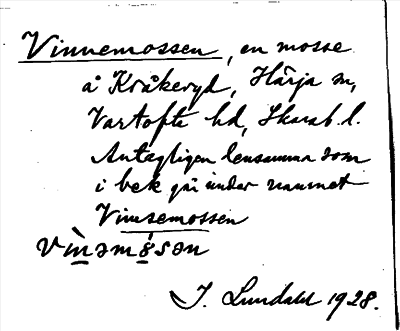 Vinnemossen, en mosse
å Kråkeryd, Härja sn,
Vartofta hd, Skarab. l.
Antagligen densamma som
i bek går under namnet
Vimsemossen
vìnəmó̀sən
I. Lundahl 1928.